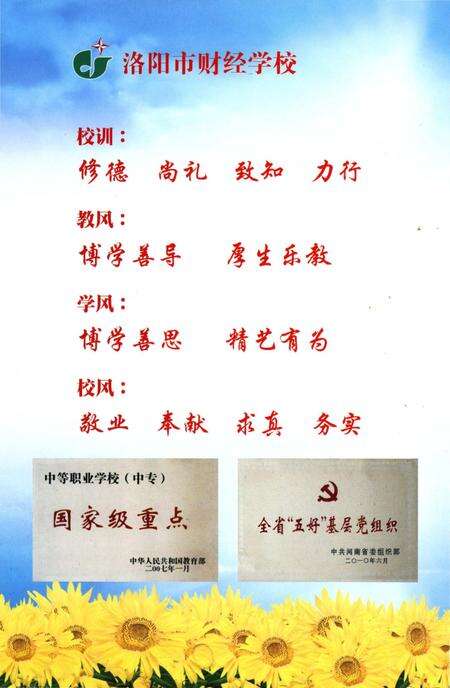 洛阳市财经学校
校训：
修德 尚礼 致知 力行
教风：
博学善导 厚生乐教
学风：
博学善思 精艺有为
校风：
敬业 奉献 求真 务实
中等职业学校（中专）
国家级重点
中华人民共和国教育部
二00七年一月
全省“五好”基层党组织
中共河南省委组织部
二〇一〇年六月